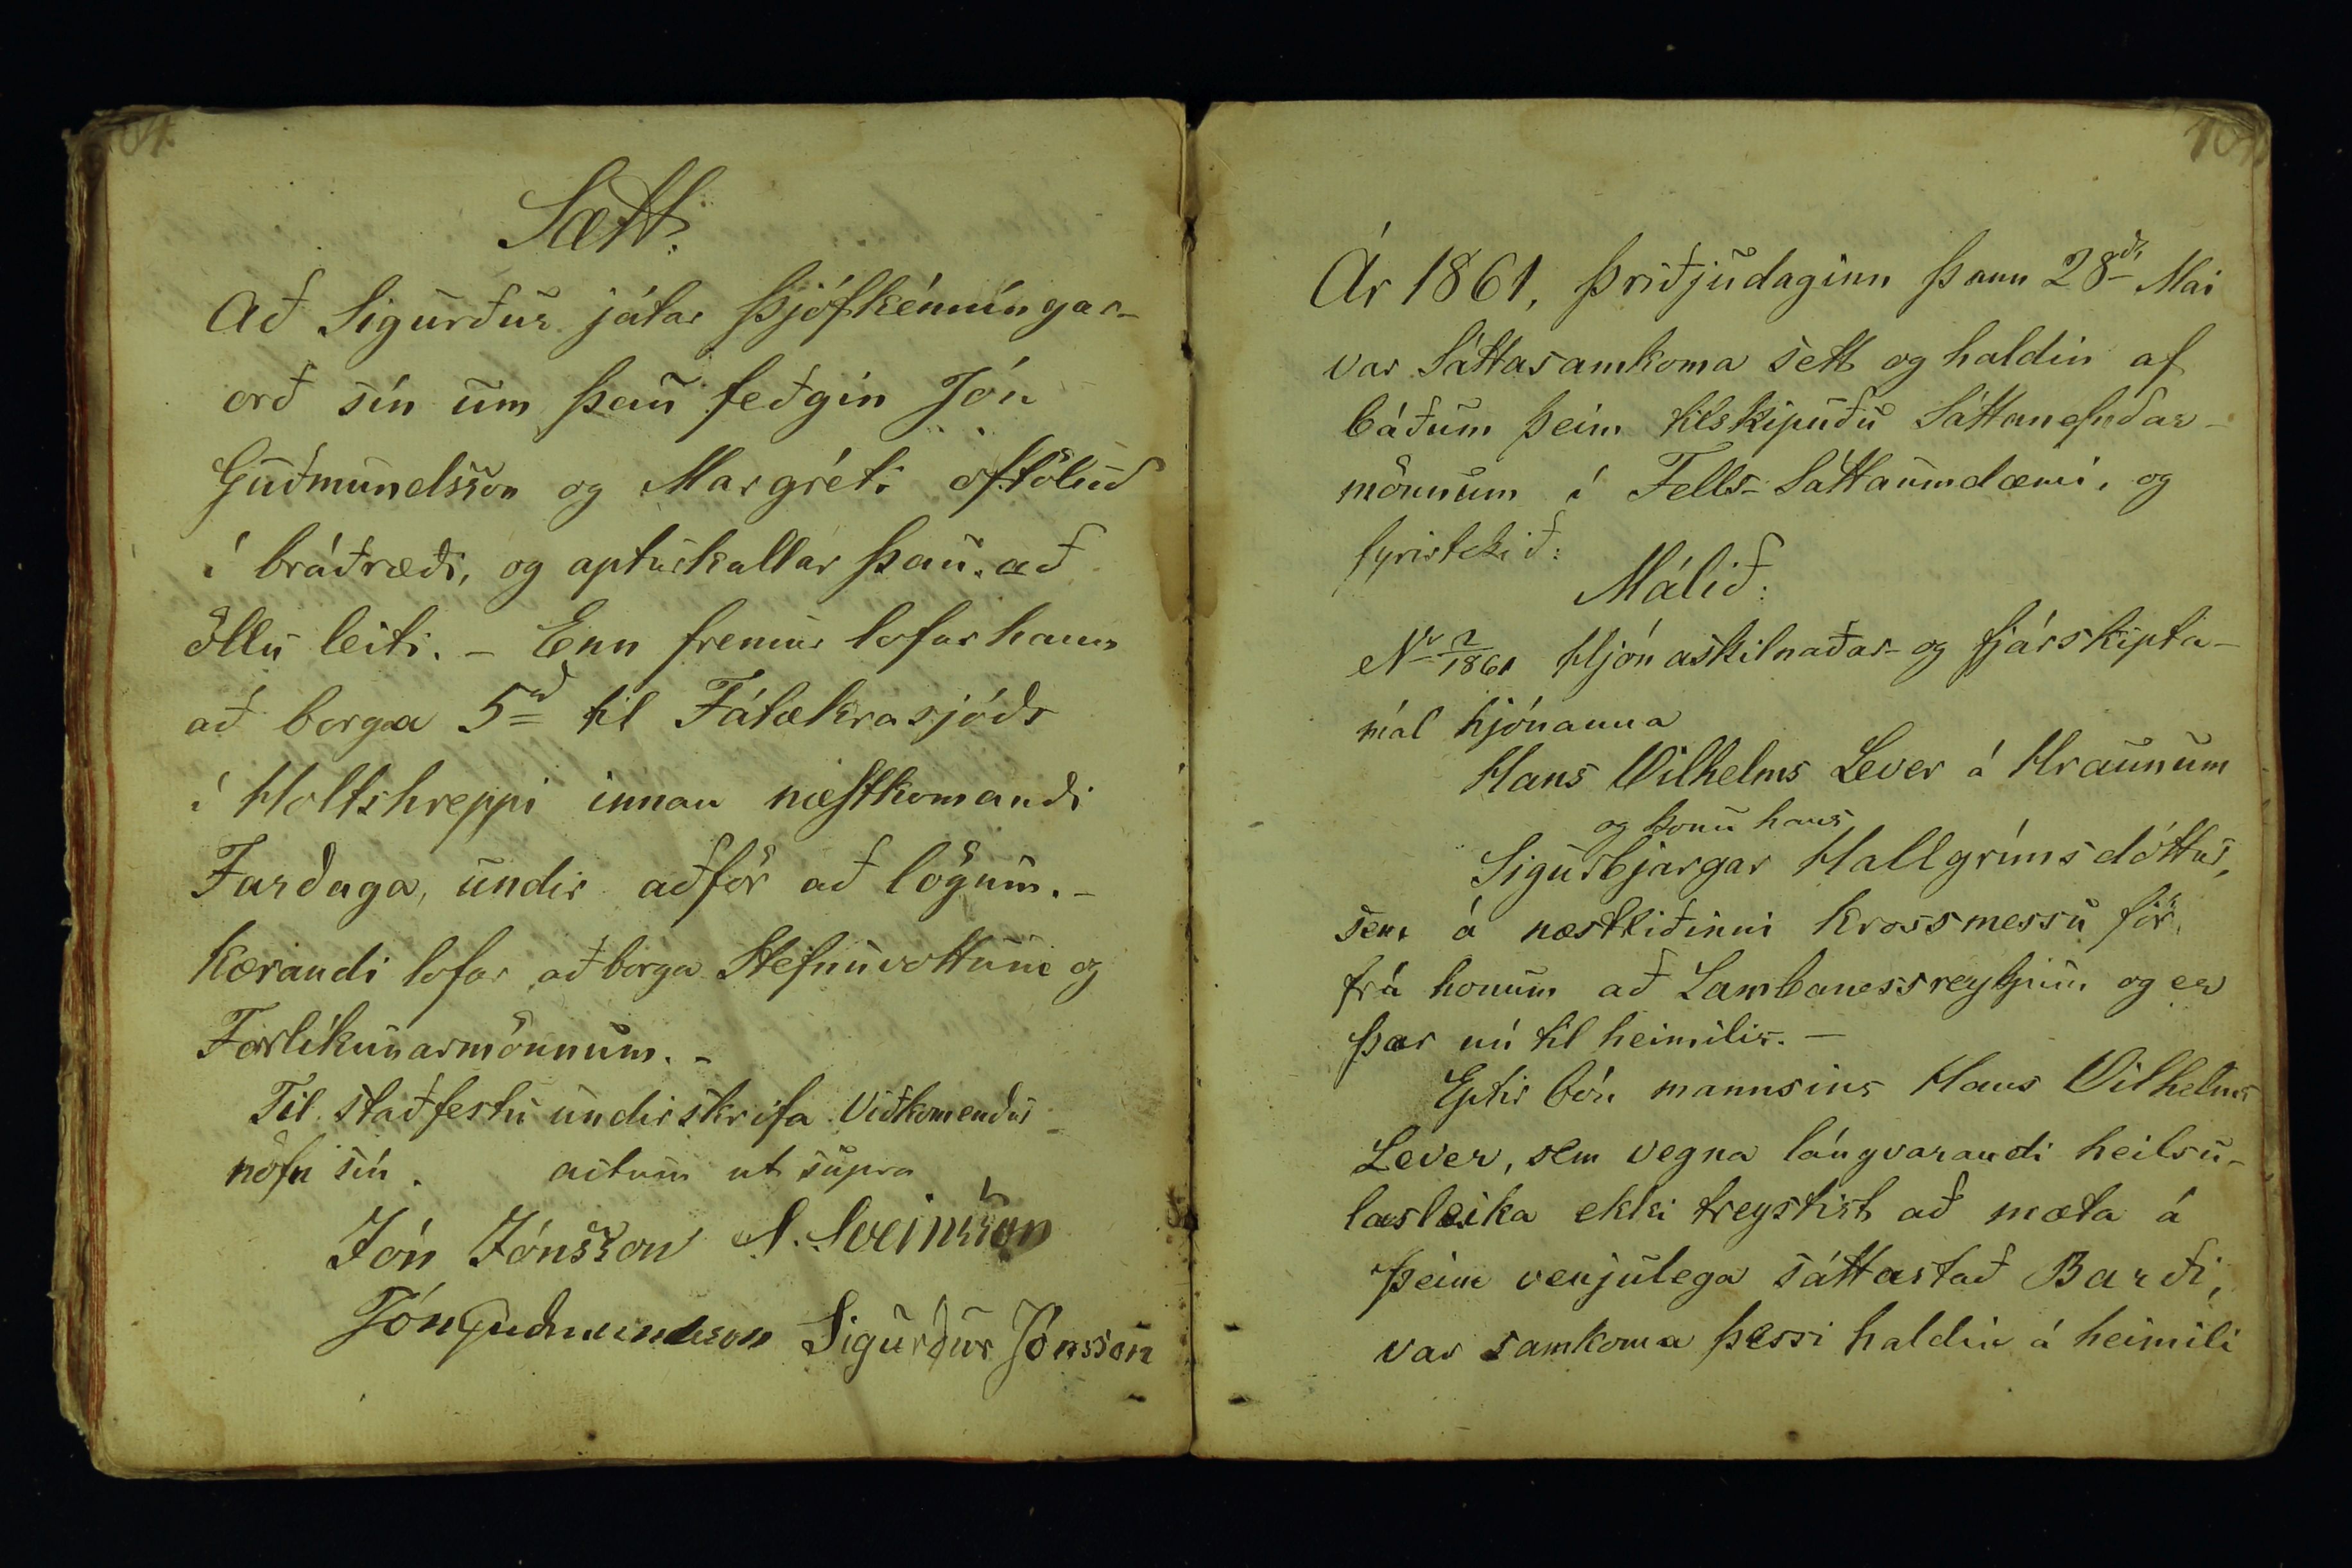 Sætt:
Að Sigurður játar Þjófkénníngar-
orð sín um þau feðgin Jón
Guðmundsson og Margréti oftöluð
í bráðræði, og apturkallar þau að
öllu leiti. – Enn fremur lofar hann
að borga 5rd til Fátækrasjóðs
í Holtshreppi innan næstkomandi
Fardaga, undir aðför að lögum. –
Kærandi lofar að borga Stefnuvottum og
Forlíkunarmönnum. –
Til staðfestu undirskrifa Viðkomendur
nöfn sín. actum ut supra
Jón Jónsson S. Sveinsson
Jón Guðmundsson Sigurður Jónsson
Ár 1861, Þriðjudaginn Þann 28ða Mai
var Sáttasamkoma sett og haldin af
báðum þeim tilskipuðu Sáttanefndar-
mönnum í Fells-Sáttaumdæmi, og
fyrirtekið:
Málið:
Nr 2/1861 Hjónaskilnaðar- og fjárskipta-
mál hjónanna
Hans Vilhelms Lever á Hraunum
og konu hans
Sigurbjargar Hallgrímsdóttur,
sem á næstliðinni Krossmessu fór
frá honum að Lambanessreykjum og er
þar nú til heimilis. –
Eptir bón mannsins Hans Vilhelms
Lever, sem vegna lángvarandi heilsu-
lasleika ekki treystist að mæta á
þeim venjulega sáttastað Barði,
var samkoma þessi haldin á heimili